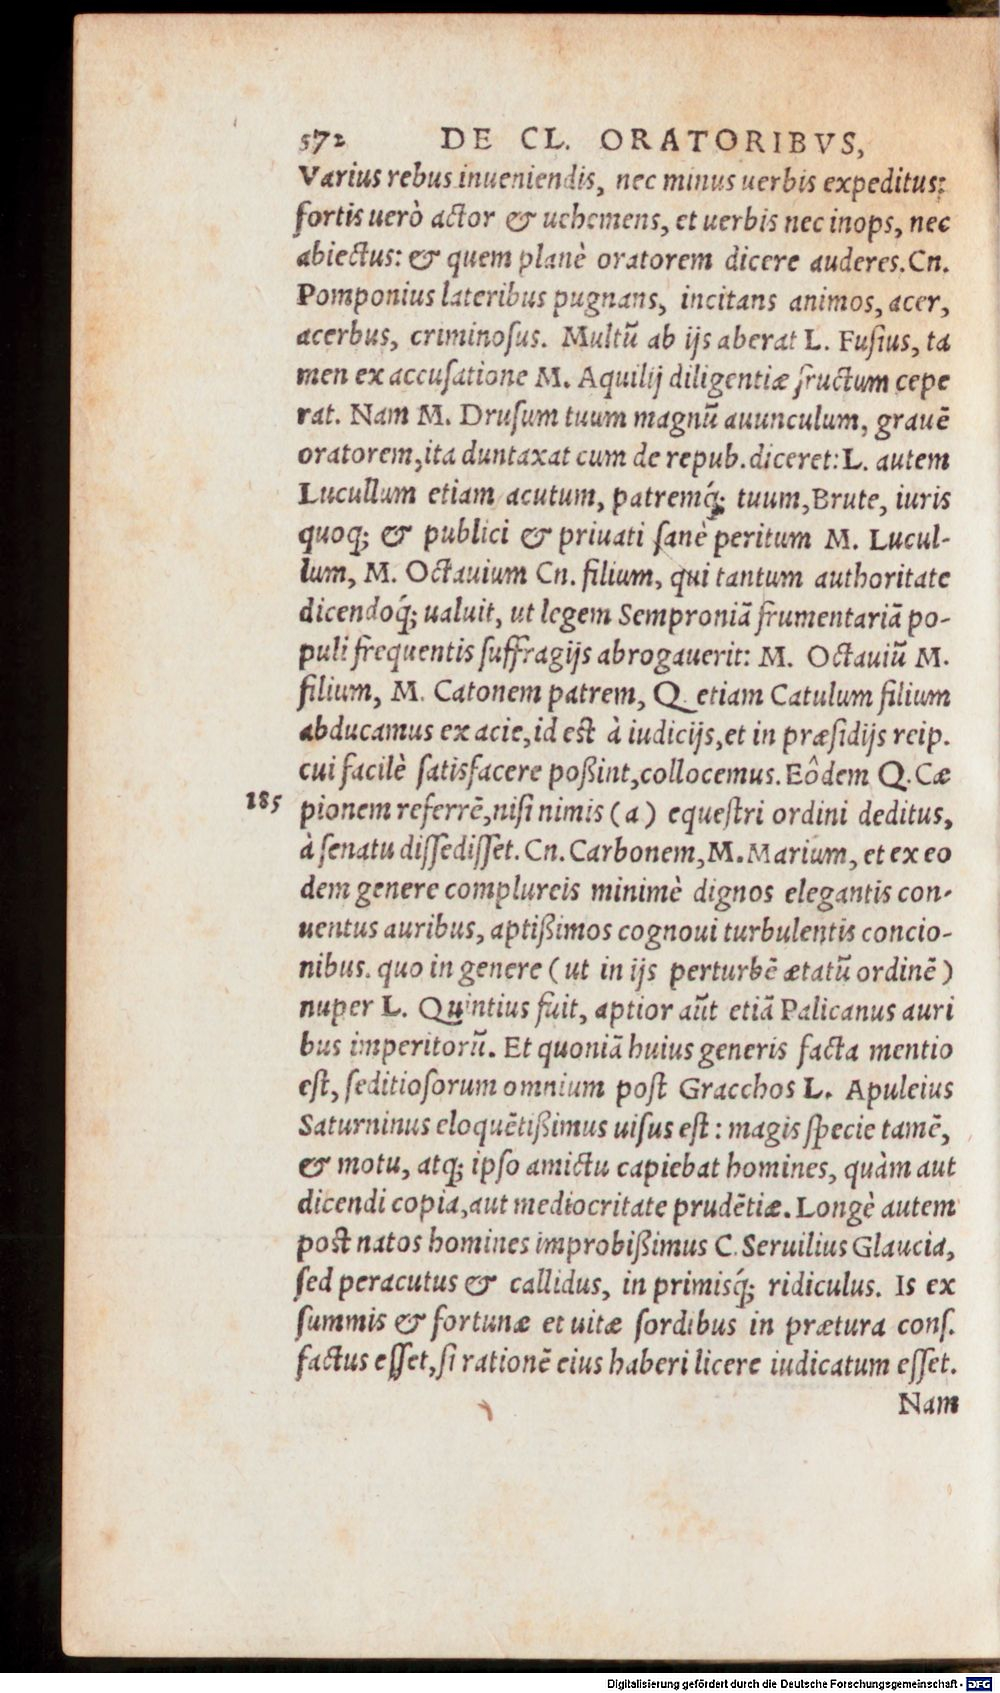 572 DE CL. ORATORIBVS,
Varius rebus inueniendis, nec minus uerbis expeditus:
fortis uerò actor & uehemens, et uerbis nec inops, nec
abiectus: & quem planè oratorem dicere auderes. Cn.
Pomponius lateribus pugnans, incitans animos, acer,
acerbus, criminoſus. Multū ab ijs aberat L. Fuſius, ta
men ex accuſatione M. Aquilij diligentiæ fructum cepe
rat. Nam M. Druſum tuum magnū auunculum, grauē
oratorem, ita duntaxat cum de repub. diceret: L. autem
Lucullum etiam acutum, patremq́; tuum, Brute, iuris
quoq; & publici & priuati ſanè peritum M. Lucul-
lum, M. Octauium Cn. filium, qui tantum authoritate
dicendoq́; ualuit, ut legem Semproniā frumentariā po-
puli frequentis ſuffragijs abrogauerit: M. Octauiū M.
filium, M. Catonem patrem, Q. etiam Catulum filium
abducamus ex acie, id eſt à iudicijs, et in præſidijs reip.
cui facilè ſatisfacere poßint, collocemus. Eôdem Q. Cæ
185 pionem referrē, niſi nimis (a) equeſtri ordini deditus,
à ſenatu diſſediſſet. Cn. Carbonem, M. Marium, et ex eo
dem genere complureis minimè dignos elegantis con-
uentus auribus, aptißimos cognoui turbulentis concio-
nibus. quo in genere (ut in ijs perturbē ætatū ordinē)
nuper L. Quintius fuit, aptior aūt etiā Palicanus auri
bus imperitorū. Et quoniā huius generis facta mentio
eſt, ſeditioſorum omnium poſt Gracchos L. Apuleius
Saturninus eloquētißimus uiſus eſt: magis ſpecie tamē,
& motu, atq; ipſo amictu capiebat homines, quàm aut
dicendi copia, aut mediocritate prudētiæ. Longè autem
poſt natos homines improbißimus C. Seruilius Glaucia,
ſed peracutus & callidus, in primisq́; ridiculus. Is ex
ſummis & fortunæ et uitæ ſordibus in prætura conſ.
factus eſſet, ſi rationē eius haberi licere iudicatum eſſet.
Nam
Digitalisierung gefördert durch die Deutsche Forschungsgemeinschaft - DFG